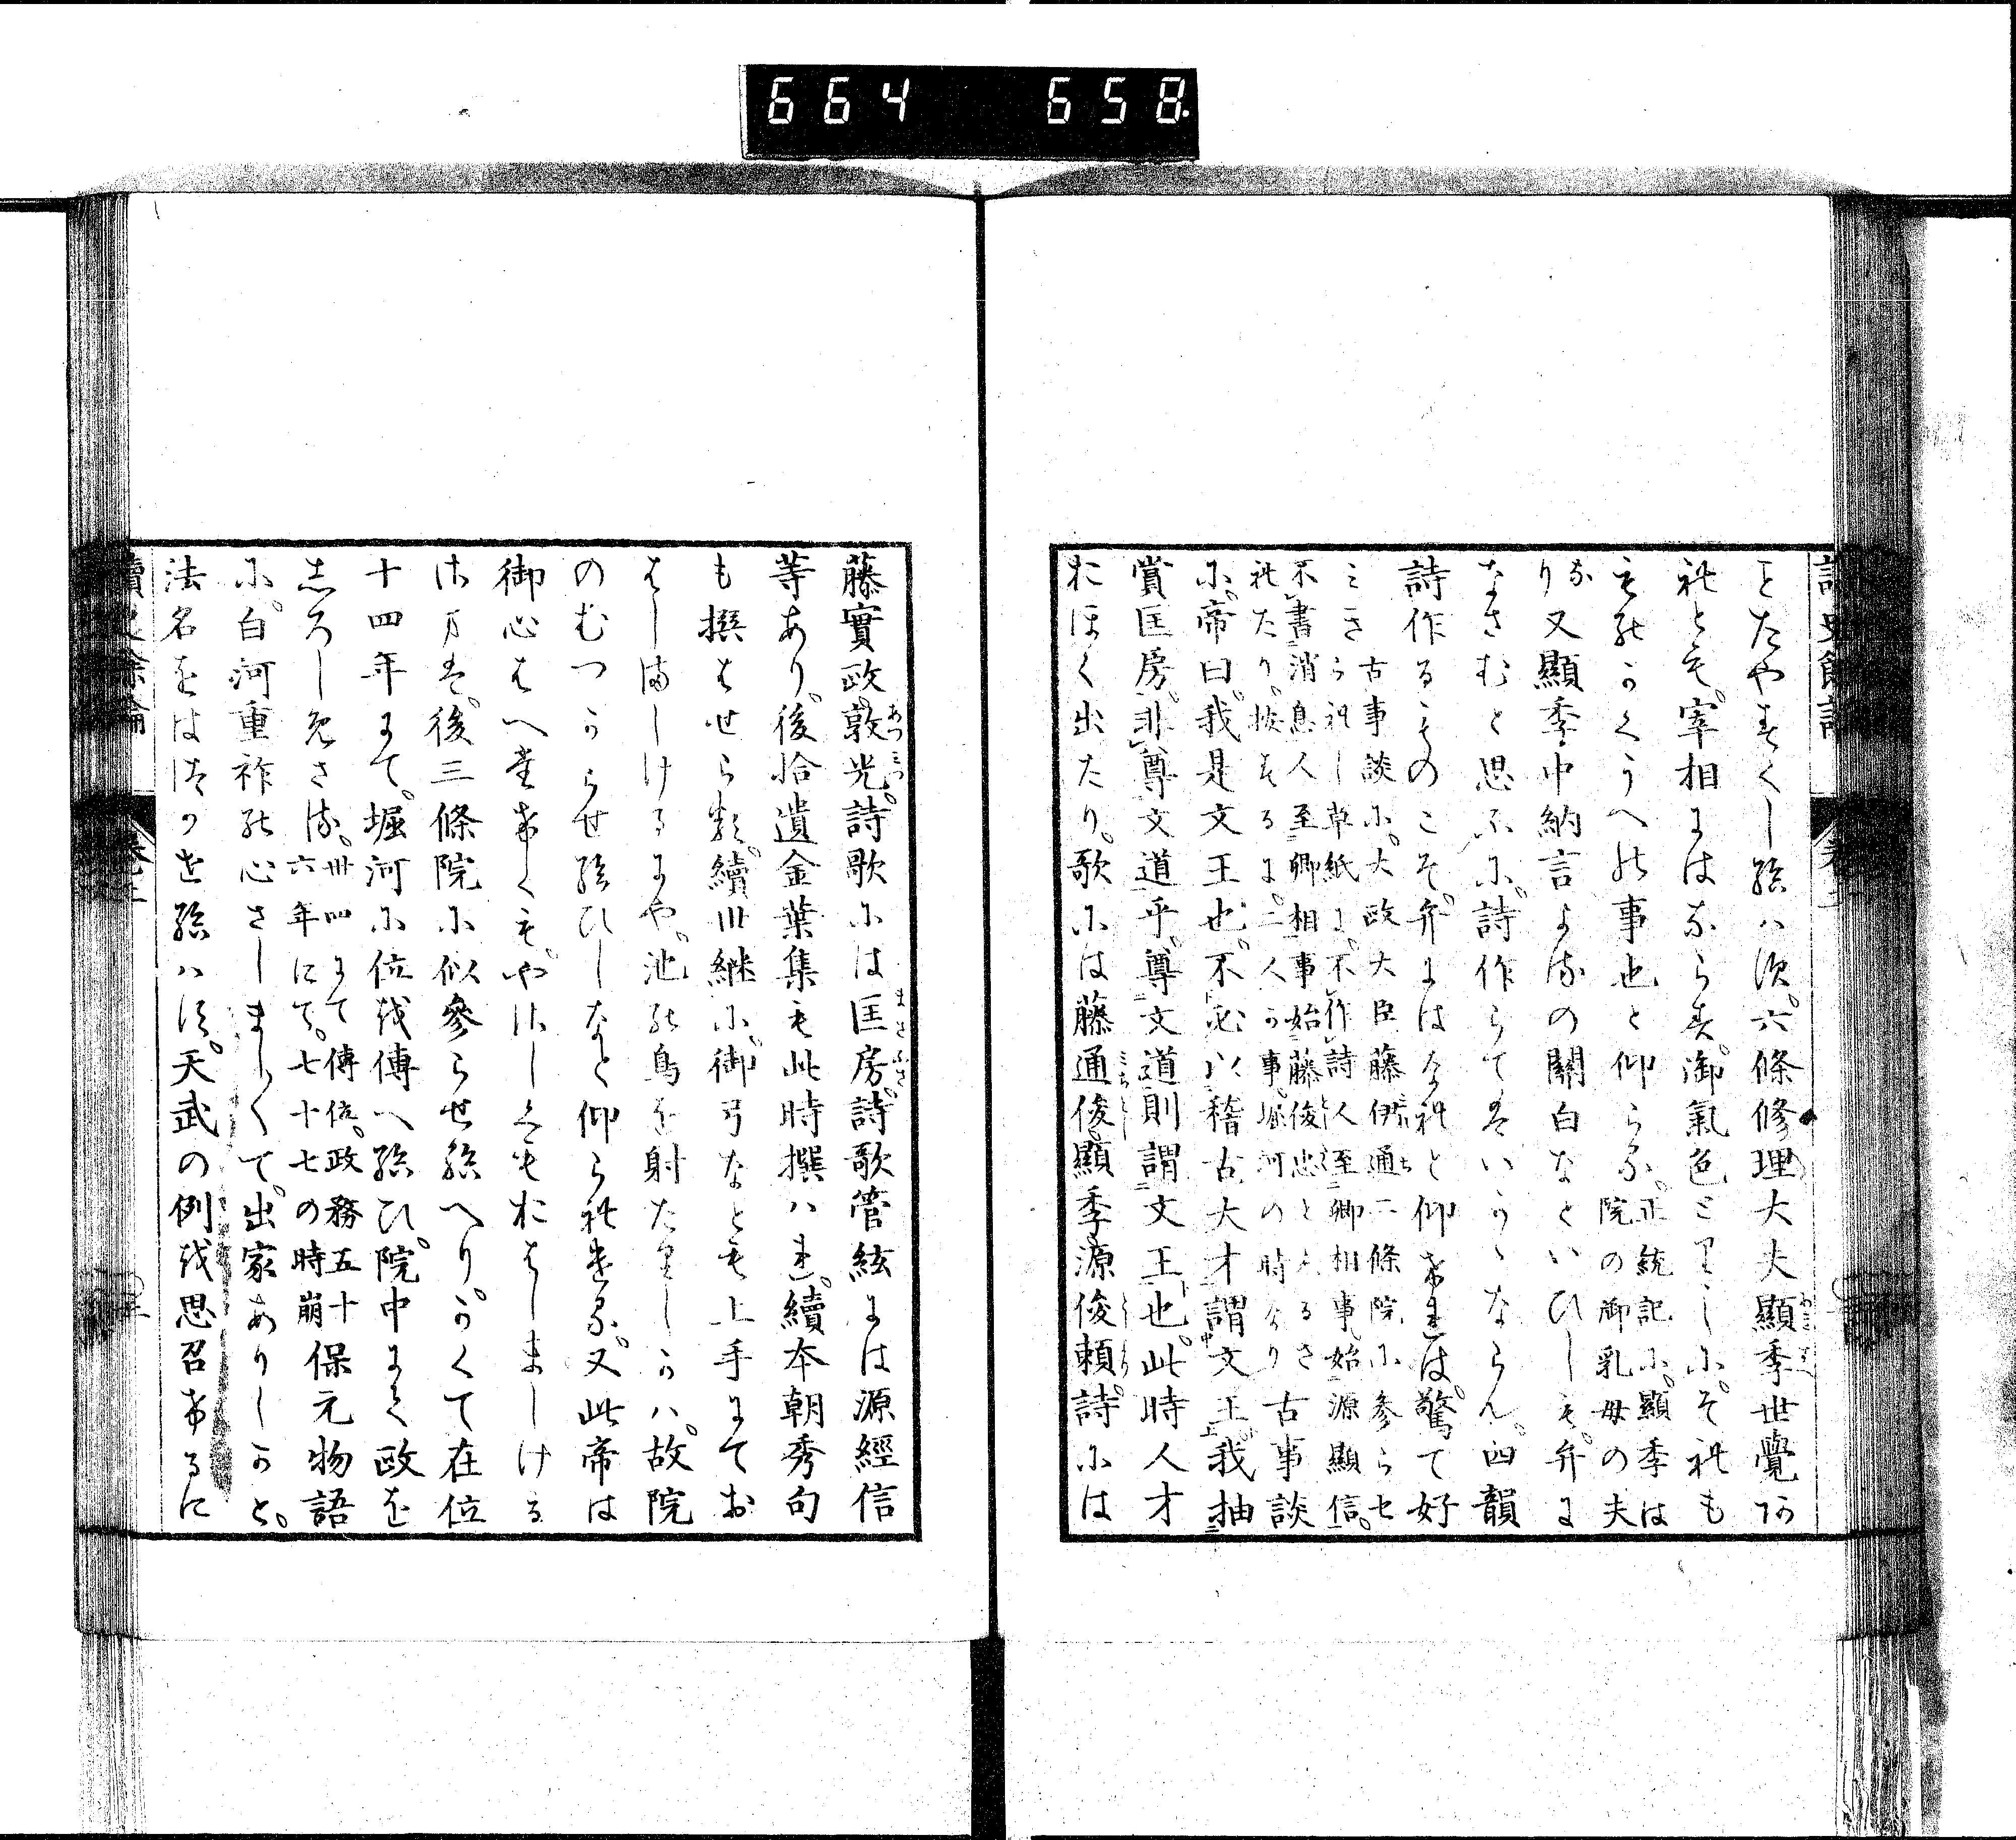 664 658
とたやすくし給はす。六條修理大夫顯季世覺あ
れとも。宰相にはならす。御氣色とりしに。それも
ものかくうへの事也と仰らる。正統記に。顯季は
院の御乳母の夫
なり又顯季中納言よりの關白なといひしも。弁に
なさむと思ふに。詩作らてはいかゝならん。四韻
詩作るものこそ。弁にはなれと仰ければ。驚て好
みき古事談に。大政大臣藤伊通二條院に参らせ
られし草紙に。不作詩人至卿相事。始源顯信。
不書消息人至卿相事始藤俊忠としるさ
れたり。按するに。二人の事。堀河の時なり古事談
に。帝曰。我是文王也。不必以稽古大才謂文王。我抽
賞匡房。非尊文道乎。尊文道則謂文王也。此時人才
おほく出たり。歌には藤通俊。顯季。源俊頼。詩には
藤實政。敦光。詩歌には匡房。詩歌管絃には源經信
等あり。後拾遺金葉集も此時撰はれ。續本朝秀句
も撰はせらる。續世継に。御弓なとも上手にてお
はしましけるにや。池の鳥を射たりしかは。故院
のむつからせ給ひしなと仰られける。又此帝は
御心はへたけくも。やさしくもおはしましける
さまは。後三條院に似參らせ給へり。かくて在位
十四年にて。堀河に位を傳へ給ひ。院中にて政を
しろしめさる。卅四にて傳位。政務五十
六年にて。七十七の時崩保元物語
に。白河重祚の心さしましくて。出家ありしかと。
法名をはつかせ給はす。天武の例を思召けるに
續史餘論